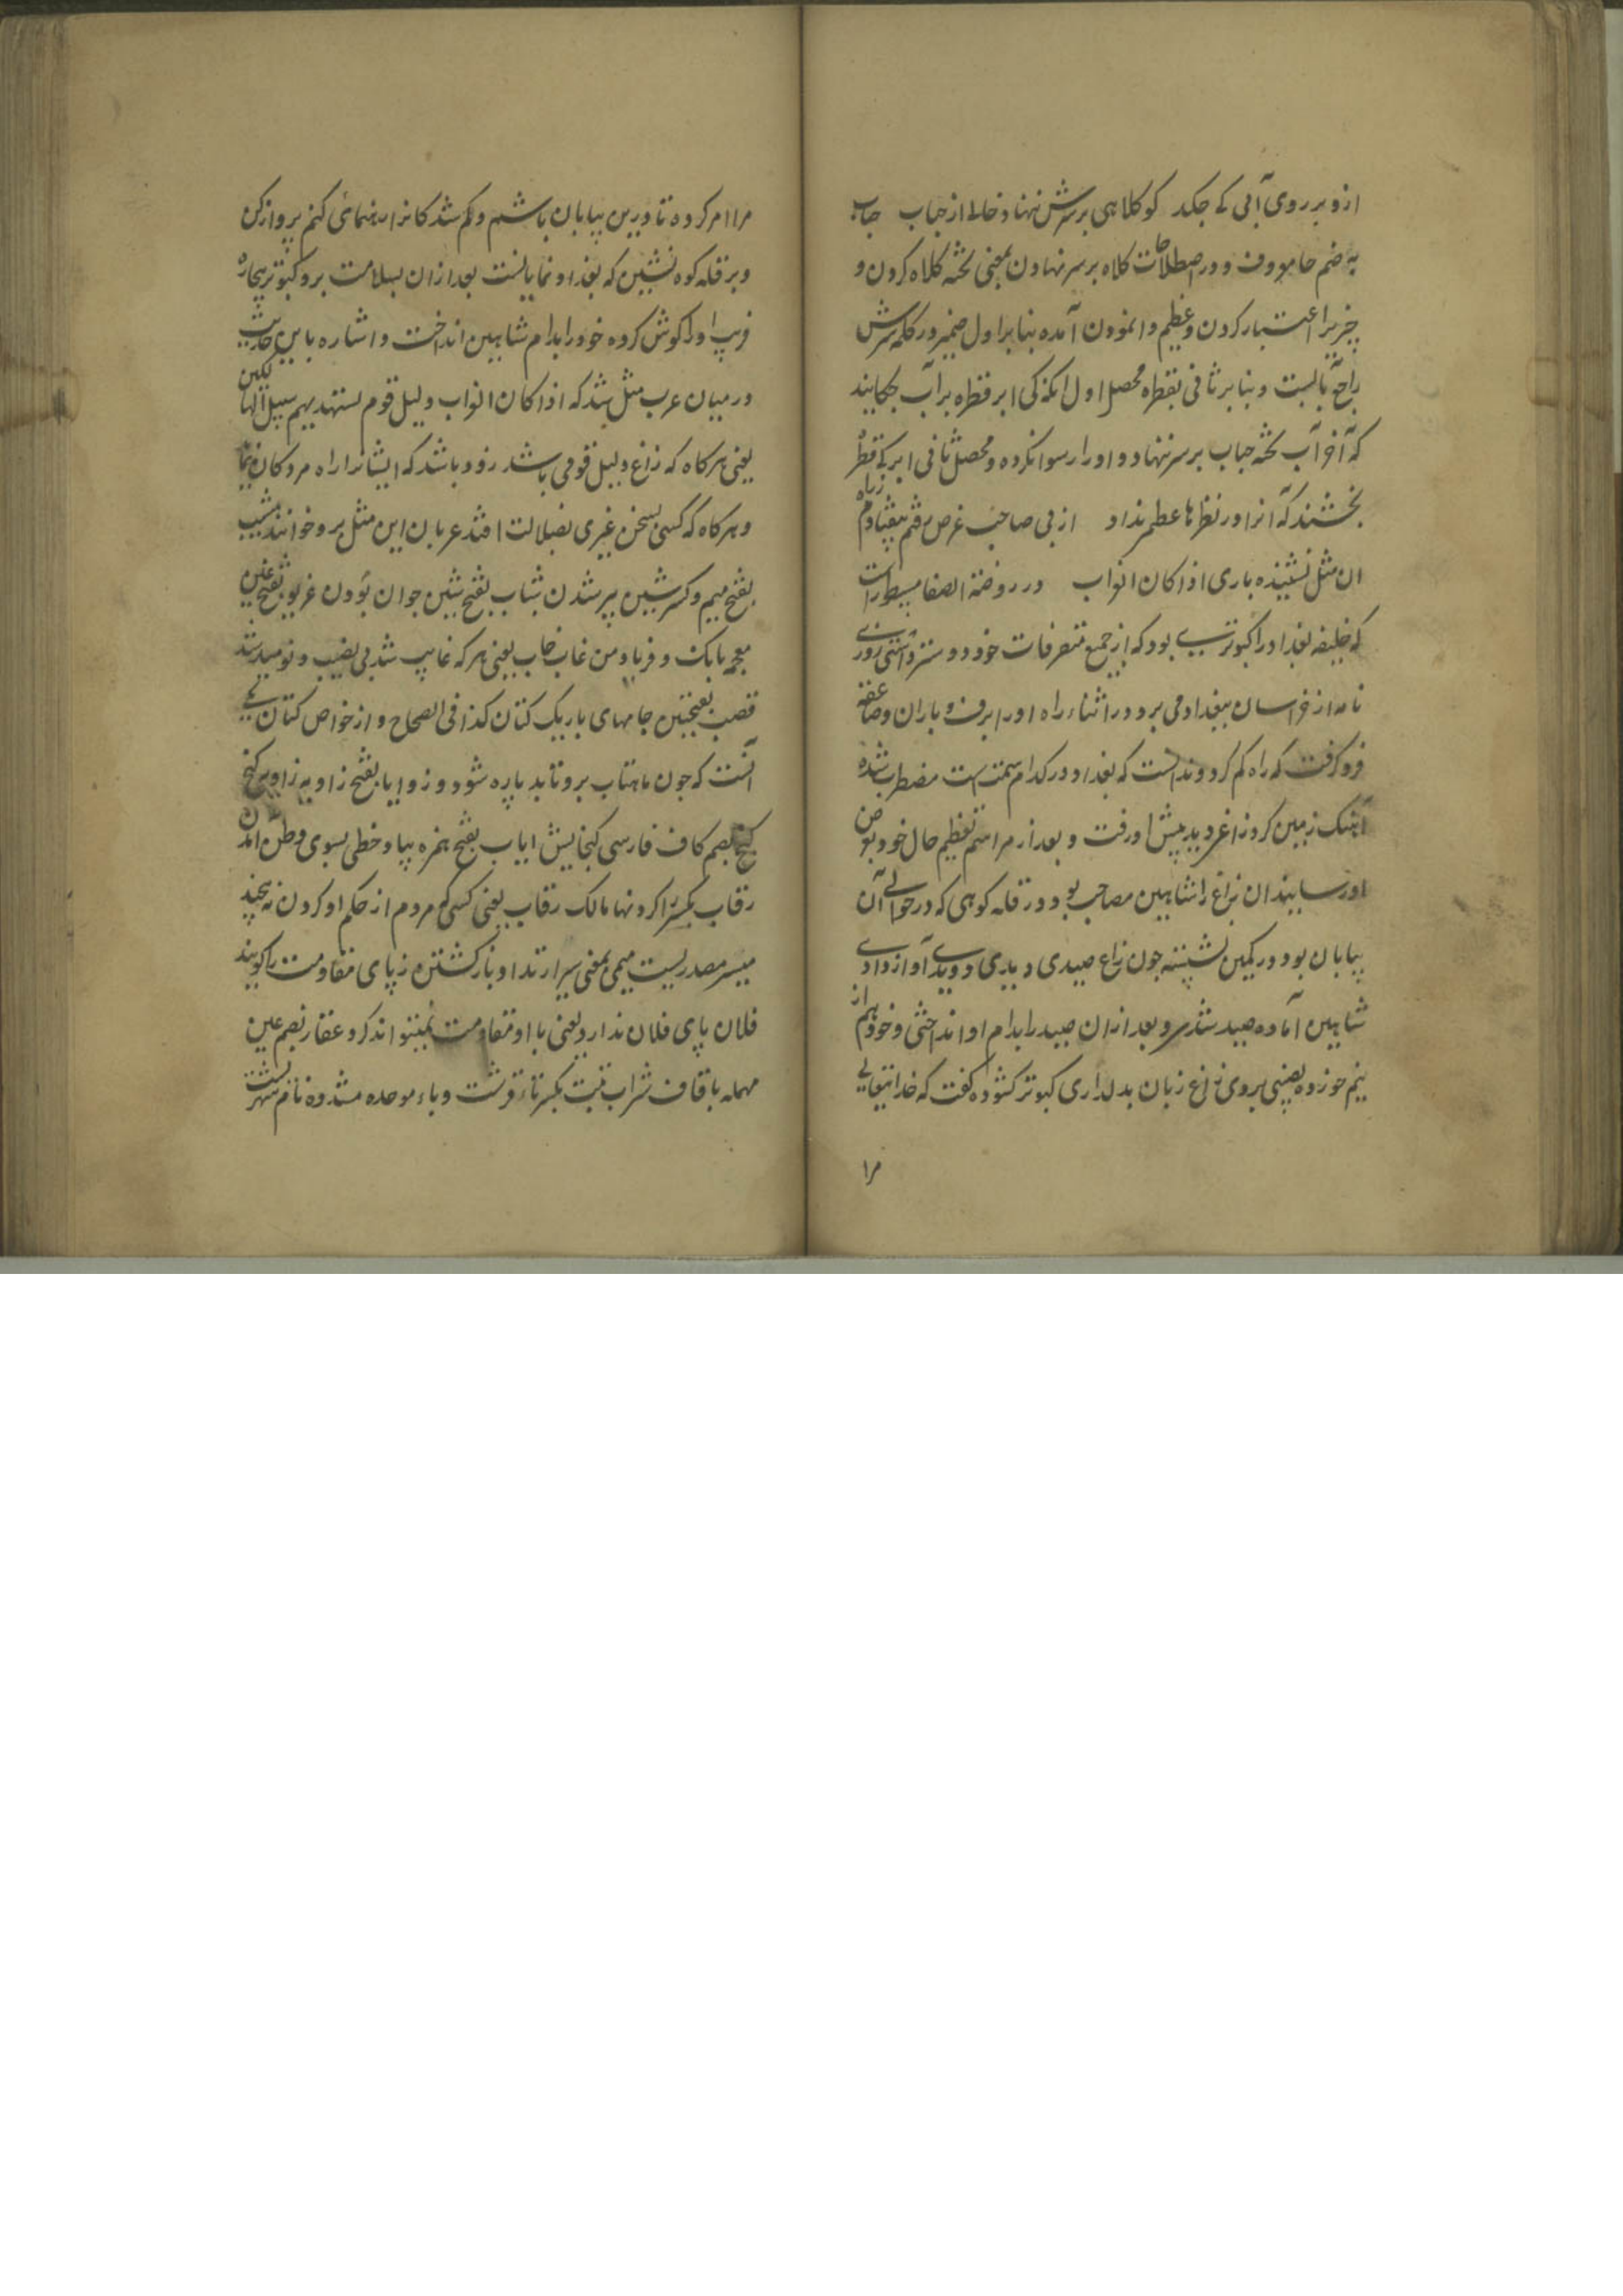 ازو بر روی آبی کے چکد کو کلاهی بر سرش ننهاد خالے از حباب حباب
به ضم حا معروف و در اصطلاحات کلاه بر سر نهادن بمعنی تخته کلاه کردن و
چیزیرا اعتبار کردن و عظیم وانمودن آمده بنابر اول ضمیر در کلمه سرش
راجع بآبست و بنابر ثانی بقطره محصل اول آنکه کی ابر قطره بر آب چکانید
که آخر آب تخته حباب بر سر ننهاد و او را رسوا نکرد و محصل ثانی ابر کے قطره
بخشند که آنرا در نظرها عظم نداد از پی صاحب غرض رفتم بیفتادم ز راه
ان مثل نشنیده باری اذا کان الغراب در روضة الصفا مسطورست
که خلیفه بغداد را کبوترے بود که از جمیع متصرفات خود دوستر داشتی روزے
نامه از خراسان ببغداد می برد در اثناء راه او را برف و باران و صاعقه
فرو گرفت که راه گم کرد و ندانست که بغداد در کدام سمت است مضطرب شده
آهنگ زمین کرد زاغی دید پیش او رفت و بعد از مراسم تعظیم حال خود بعرض
او رسانید ان زاغ را شاهین مصاحب بود در قله کوهی که در حوالے آن
بیابان بود در کمین نشسته چون زاغ صیدی دیدی دویدے آواز دادے
شاهین آماده صید شدی و بعد ازان صید را بدام او انداختی و خود هم از
نیم خورده نصیبی بروی زاغ زبان بدلداری کبوتر کشوده گفت که خدایتعالے
مرا
مرا امر کرده تا درین بیابان باشم و گم شدگانرا رهنمائی کنم پرواز کن
و بر قله کوه نشین که بغداد نمایانست بعد ازان بسلامت برو کبوتر بیچاره
فریب او را گوش کرده خود را بدام شاهین انداخت و اشاره باین حدیث
در میان عرب مثل شد که اذا کان الغراب دلیل قوم لستهدیهم سبیل الهالکین
یعنی هرگاه که زاغ دلیل قومی باشد زود باشد که ایشانرا راه مردگان نماید
و هرگاه که کسی بسخن غیری بضلالت افتد عربان این مثل برو خوانند مشیب
بفتح میم و کسر شین پیر شدن شباب بفتح شین جوان بودن غریو بفتح غین
معجمه بانگ و فریاد من غاب خاب یعنی هر که غایب شد بی نصیب و نومید شد
قصب بفتحتین جامهای باریک کتان کذا فی الصحاح و از خواص کتان یکے
آنست که چون ماهتاب برو تابد پاره شود و زوایا بفتح زا و یه زاویه کنج
گنج بضم کاف فارسی گنجایش ایاب بفتح همزه بپا و خطی بسوی وطن آمدن
رقاب بکسر را گردنها مالک رقاب یعنی کسی که مردم از حکم او گردن نه پیچند
میسر مصدریست میمی بمعنی سیر ارتداد باز گشتن و پای مقاومت را گویند
فلان پای فلان ندارد یعنی با او مقاومت نمیتواند کرد عقار بضم عین
مهمله با قاف شراب تبت بکسر تاء قرشت و باء موحده مشدده نام شهریست